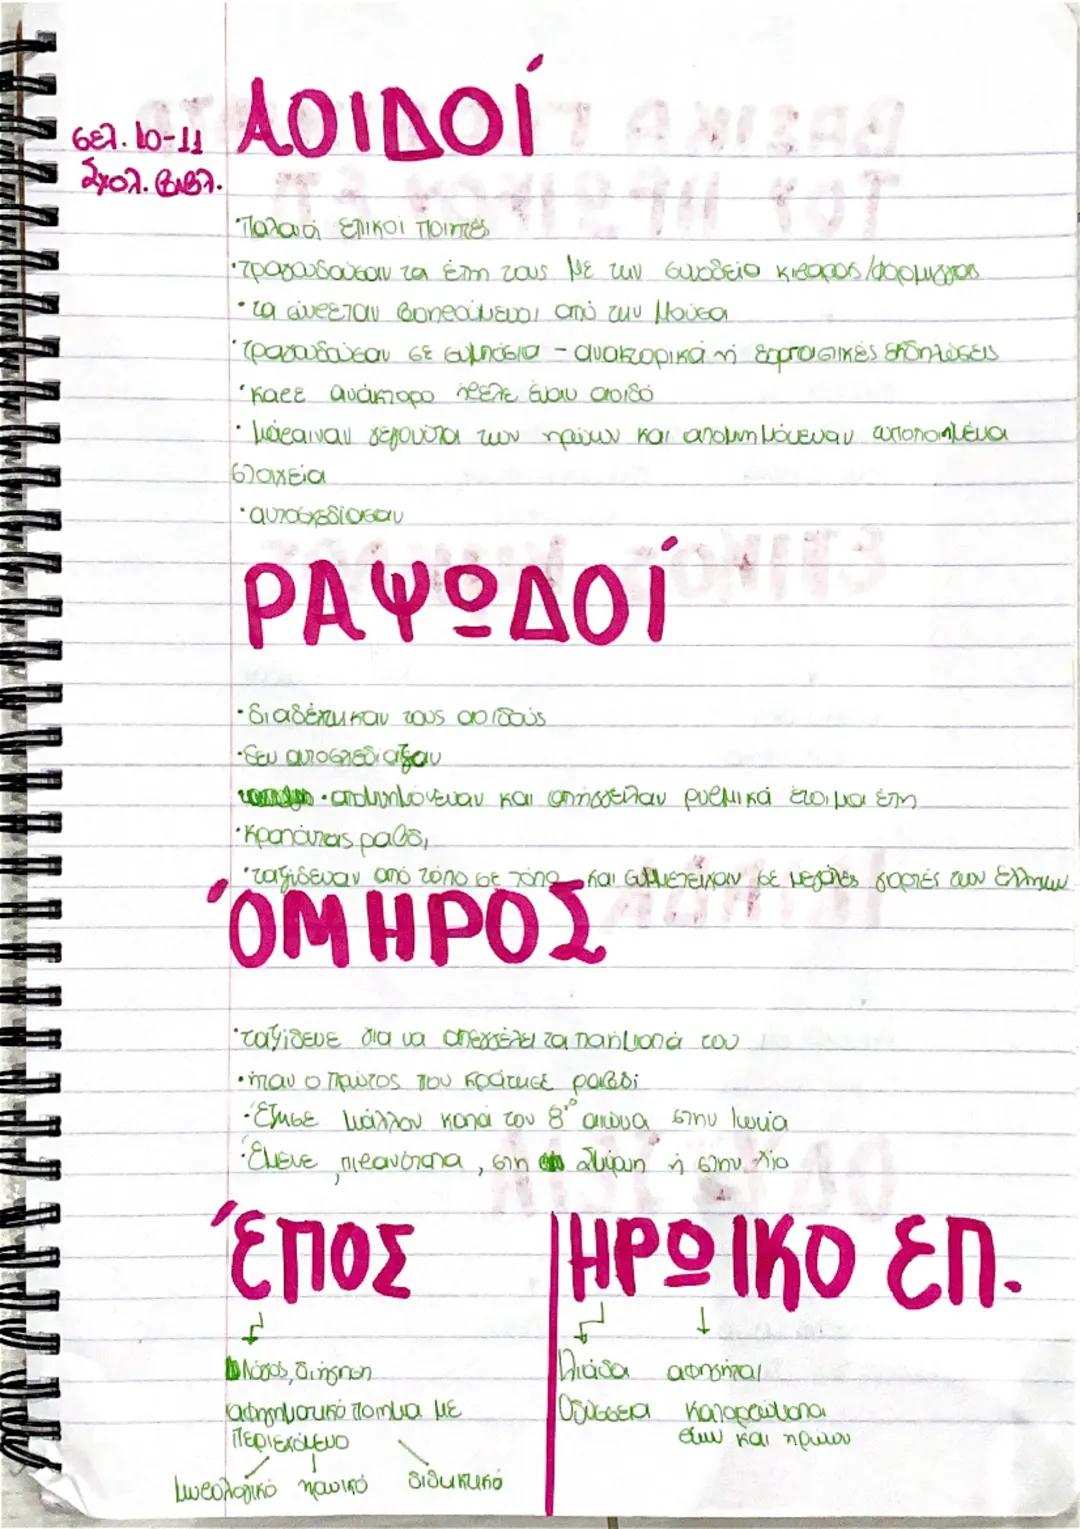 ΑΟΙΔΟΊ
σελ. 10-11
Σχολ. Βιβλ.
·Παλαιοί επικοί ποιητές
·τραγουδούσαν τα έπη τους με την συνοδεία κιθάρας/φόρμιγγας
·τα συνέθεταν βοηθούμενοι από την Μούσα
·τραγουδούσαν σε συμπόσια - ανακτορικά ή εορταστικές εκδηλώσεις
·κάθε ανάκτορο ήθελε έναν αοιδό
·μάθαιναν γεγονότα των ηρώων και απομνημόνευαν τυποποιημένα
στοιχεία
·αυτοσχεδίαζαν
ΡΑΨΩΔΟΊ
·διαδέχτηκαν τους αοιδούς
·δεν αυτοσχεδίαζαν
·απομνημόνευαν και απήγγειλαν ρυθμικά έτοιμα έπη
·Κρατώντας ραβδί
·ταξίδευαν από τόπο σε τόπο και συμμετείχαν σε μεγάλες γιορτές των Ελλήνων
ΌΜΗΡΟΣ
·ταξίδευε για να απαγγέλει τα ποιήματά του
·ήταν ο πρώτος που κράτησε ραβδί
·Έζησε μάλλον κατά τον 8ο αιώνα στην Ιωνία
·Έμενε, πιθανότατα, στη Σμύρνη ή στην Χίο
ΈΠΟΣ | ΗΡΩΙΚΟ ΕΠ.
Λόγος, διήγηση
αφηγηματικό ποίημα με
περιεχόμενο
μυθολογικό ηρωικό διδακτικό
Ιλιάδα αφηγήται
Οδύσσεια κατορθώματα
θεών και ηρώων